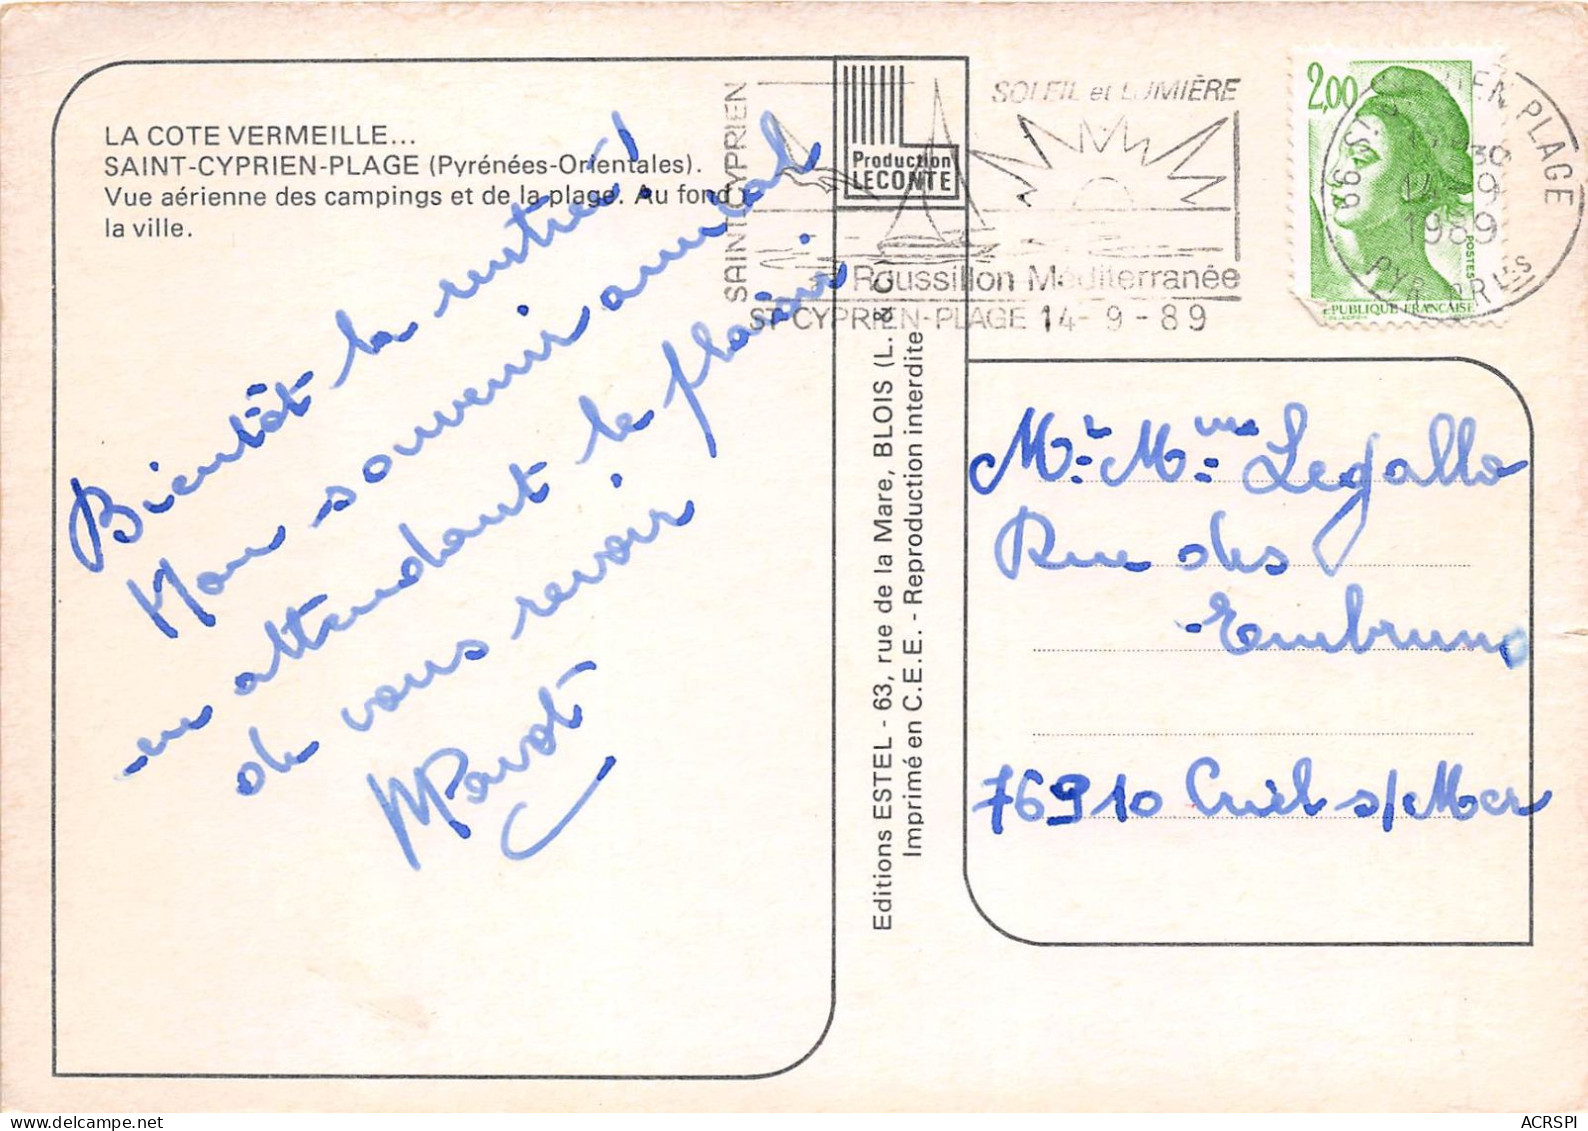 LA COTE VERMEILLE...
SAINT-CYPRIEN-PLAGE (Pyrénées-Orientales).
Vue aérienne des campings et de la plage. Au fond :
la ville.
Bientôt la rentrée!
Mon souvenir amical
en attendant le plaisir
de vous revoir
Editions ESTEL - 63, rue de la Mare, BLOIS (L. & C.)
Imprimé en C.E.E. - Reproduction interdite
Production
LECONTE
SAINT CYPRIEN
SOLEIL et LUMIÈRE
Roussillon Méditerranée
ST CYPRIEN-PLAGE 14-9-89
2,00
POSTES
REPUBLIQUE FRANCAISE
66 ST CYPRIEN PLAGE
1989
Mr Mme Legallo
Rue des
Embruns
76910 Criel s/Mer
ACRSPI